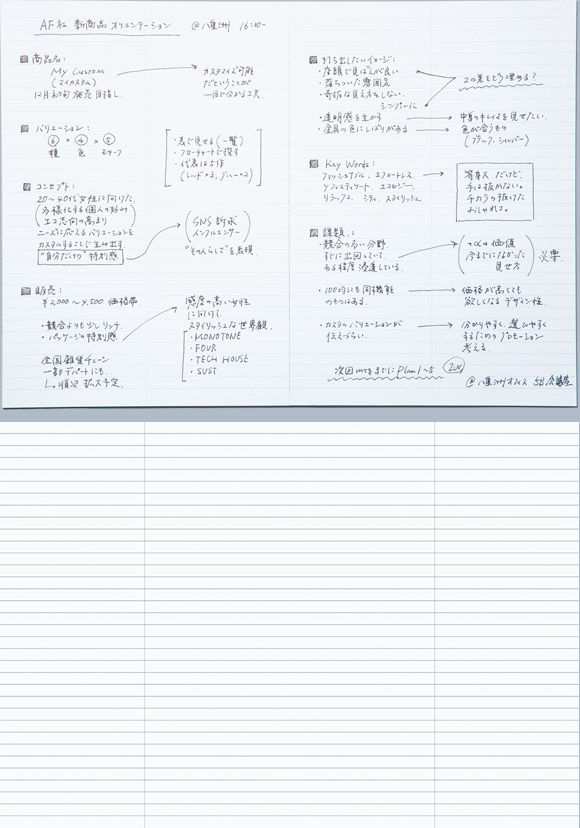 AF社 新商品 オリエンテーション @八重洲 16:00-
商品名:
My Custom
(マイカスタム)
12月初旬 発売 目指し.
カスタマイズ可能
だということが
一目で分かる工夫.
バリエーション:
⑥ × ④ × ⑤
種 色 ステーフ
・表で見せる(一覧)
・フローチャートで探す
・代表は5作
(レッド×3, ブルー×2)
コンセプト:
20〜40代女性に向けた.
(多様化する個人の好み
エコ志向の高まり)
ニーズに応えるバリエーションを
カスタムすることで生み出す
"自分だけの"特別感
(SNS訴求
インフルエンサー)
"その人らしさ"を表現.
販売:
¥2,000〜4,500 価格帯.
・競合よりも少しリッチ.
・パッケージの特別感
全国雑貨チェーン
一部デパートにも.
順次 拡大予定.
感度の高い女性
に向ける.
スタイリッシュな世界観.
・MONOTONE
・FOUR
・TECH HOUSE
・SUST
打ち出したいイメージ:
・店頭で見ばえが良い
・落ちついた雰囲気
・奇抜な見え方をしない.
シンプルに
2つの差をどう埋める?
・透明感を生かす
中身のキレイさを見せたい.
・金具の色にしばりがある
色が合うもの
(ブラック, シルバー)
Key Words:
フィッシュブルー, エフォートレス
ソフィスティケート, エコロジー,
リラックス, シティ, スタイリッシュ
等身大だけど,
手は抜かない.
チカラの抜けた
おしゃれさ.
課題:
・競合の多い分野.
すでに出回っていて.
ある程度浸透している.
+αの価値
今までになかった
見せ方
※必要.
・100均にも同機能
のものはある.
価格が高くても
欲しくなるデザイン性.
・カスタムバリエーションが
伝えづらい.
分かりやすく, 選びやすく
するためのプロモーション
考える.
次回mtgまでにPlan 1〜5
@八重洲オフィス 5B会議室